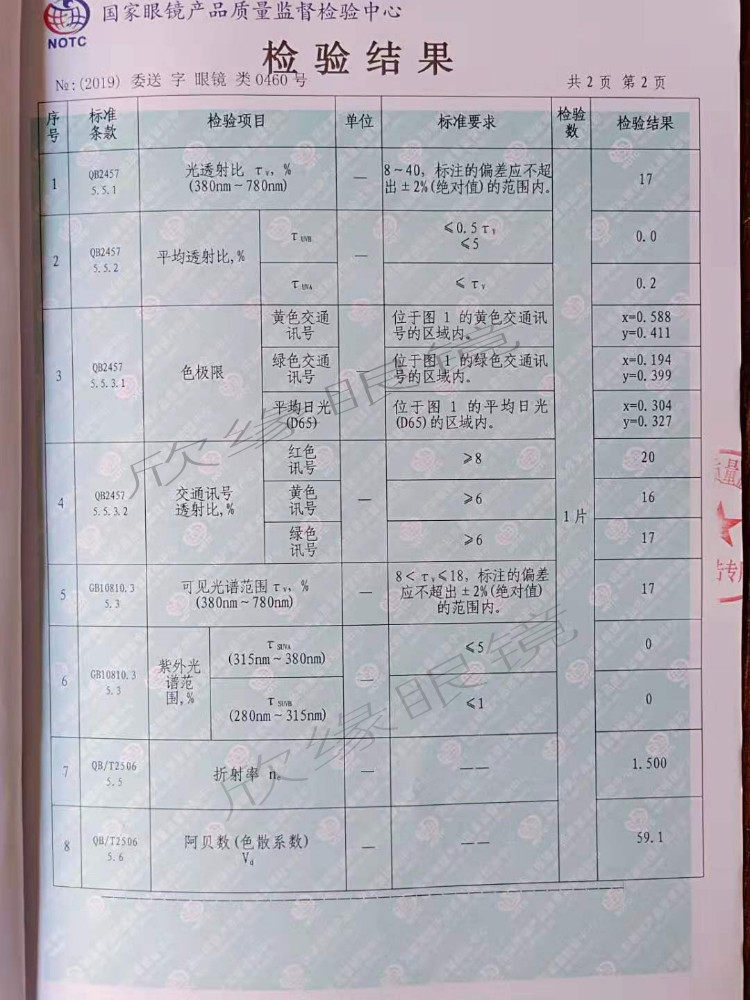 国家眼镜产品质量监督检验中心
NOTC
检验结果
№:(2019) 委送 字 眼镜 类0460号
共 2 页 第 2 页
序号
标准条款
检验项目
单位
标准要求
检验数
检验结果
1
QB2457
5.5.1
光透射比 τv, %
(380nm~780nm)
—
8~40, 标注的偏差应不超
出±2%(绝对值)的范围内。
17
2
QB2457
5.5.2
平均透射比,%
τUVB
—
≤0.5τv
≤5
0.0
τUVA
≤τv
0.2
3
QB2457
5.5.3.1
色极限
黄色交通
讯号
—
位于图 1 的黄色交通讯
号的区域内。
x=0.588
y=0.411
绿色交通
讯号
位于图1 的绿色交通讯
号的区域内。
x=0.194
y=0.399
平均日光
(D65)
位于图 1 的平均日光
(D65)的区域内。
x=0.304
y=0.327
4
QB2457
5.5.3.2
交通讯号
透射比,%
红色
讯号
—
≥8
20
黄色
讯号
≥6
16
绿色
讯号
≥6
17
1片
5
GB10810.3
5.3
可见光谱范围τv, %
(380nm~780nm)
—
8<τv≤18, 标注的偏差
应不超出±2%(绝对值)
的范围内。
17
6
GB10810.3
5.3
紫外光
谱范
围,%
τSUVA
(315nm~380nm)
—
≤5
0
τSUVB
(280nm~315nm)
≤1
0
7
QB/T2506
5.5
折射率 n
—
——
1.500
8
QB/T2506
5.6
阿贝数(色散系数)
Vd
—
——
59.1
欣缘眼镜
欣缘眼镜